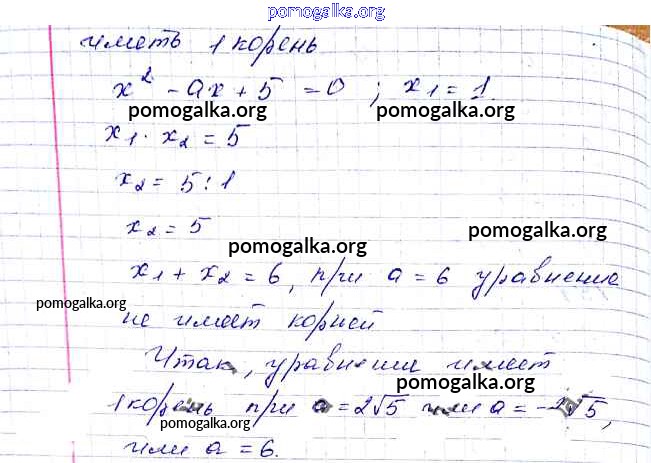 pomogalka.org
иметь 1 корень
x² - ax + 5 = 0 ; x₁ = 1
pomogalka.org pomogalka.org
x₁ · x₂ = 5
x₂ = 5 : 1
x₂ = 5
pomogalka.org pomogalka.org
x₁ + x₂ = 6, при a = 6 уравнение
pomogalka.org
не имеет корней
Итак, уравнение имеет
pomogalka.org
1 корень при a = 2√5 или a = -2√5,
pomogalka.org
или a = 6.